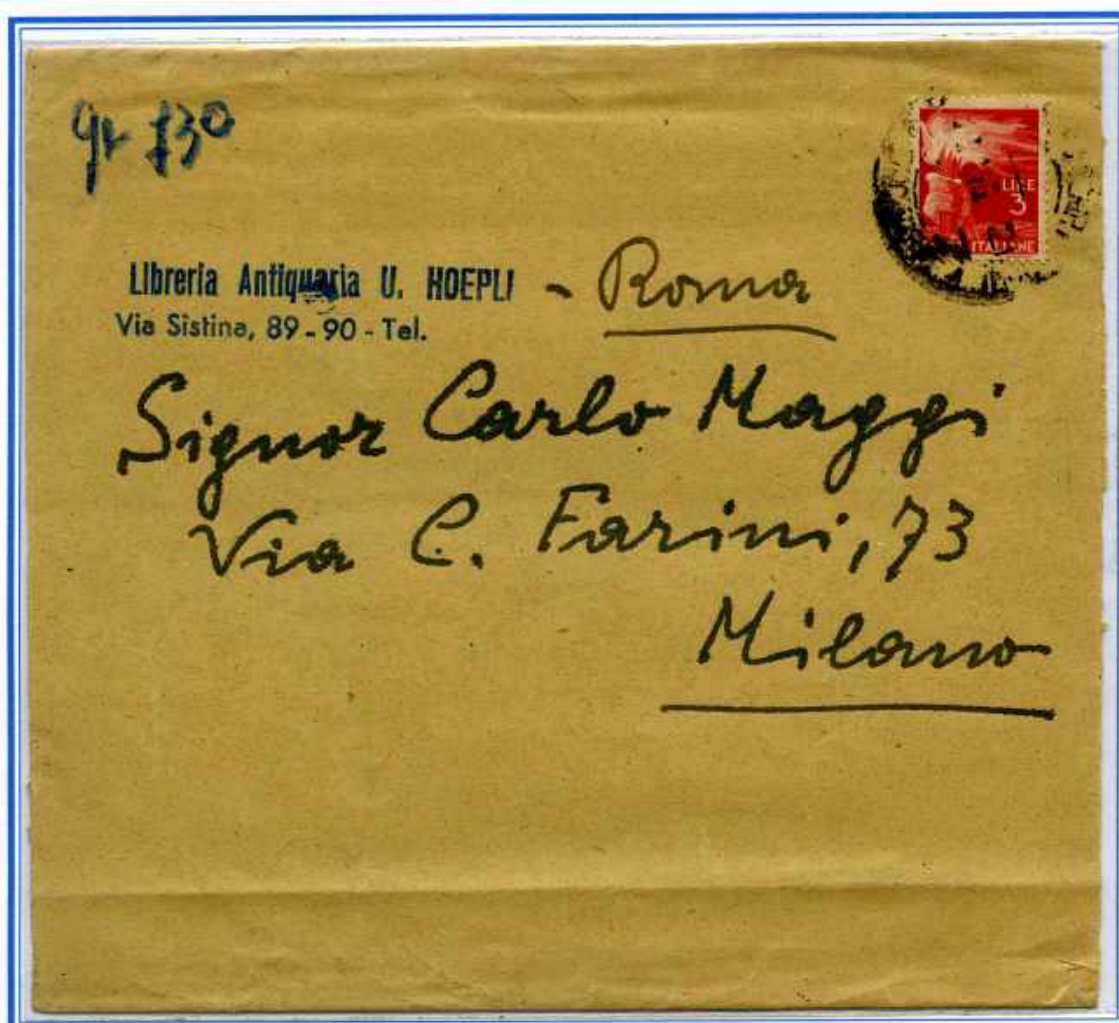 gr 130
LIRE
3
ITALIANE
Libreria Antiquaria U. HOEPLI - Roma
Via Sistina, 89-90 - Tel.
Signor Carlo Maggi
Via C. Farini, 73
Milano